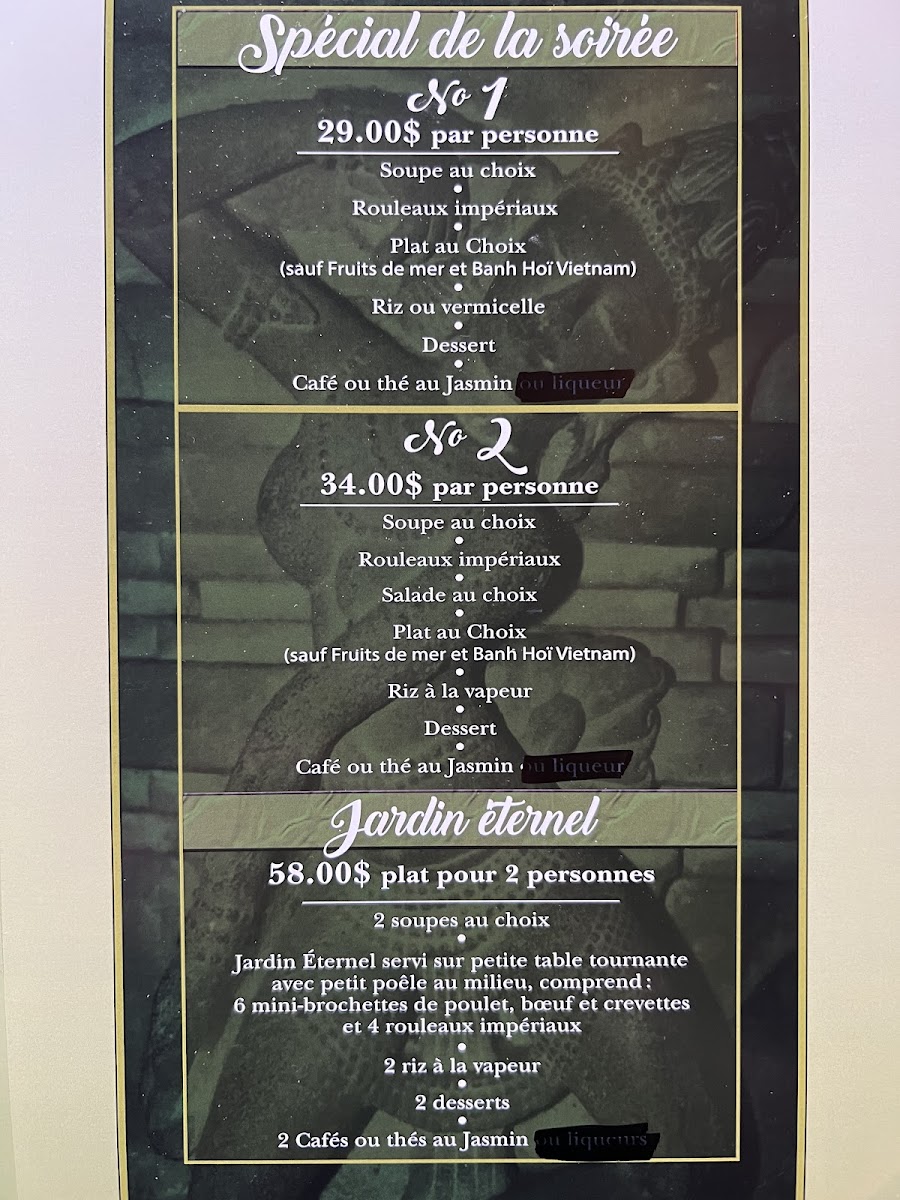 Spécial de la soirée
No 1
29.00$ par personne
Soupe au choix
Rouleaux impériaux
Plat au Choix
(sauf Fruits de mer et Banh Hoï Vietnam)
Riz ou vermicelle
Dessert
Café ou thé au Jasmin ou liqueur
No 2
34.00$ par personne
Soupe au choix
Rouleaux impériaux
Salade au choix
Plat au Choix
(sauf Fruits de mer et Banh Hoï Vietnam)
Riz à la vapeur
Dessert
Café ou thé au Jasmin ou liqueur
Jardin éternel
58.00$ plat pour 2 personnes
2 soupes au choix
Jardin Éternel servi sur petite table tournante
avec petit poêle au milieu, comprend :
6 mini-brochettes de poulet, bœuf et crevettes
et 4 rouleaux impériaux
2 riz à la vapeur
2 desserts
2 Cafés ou thés au Jasmin ou liqueurs